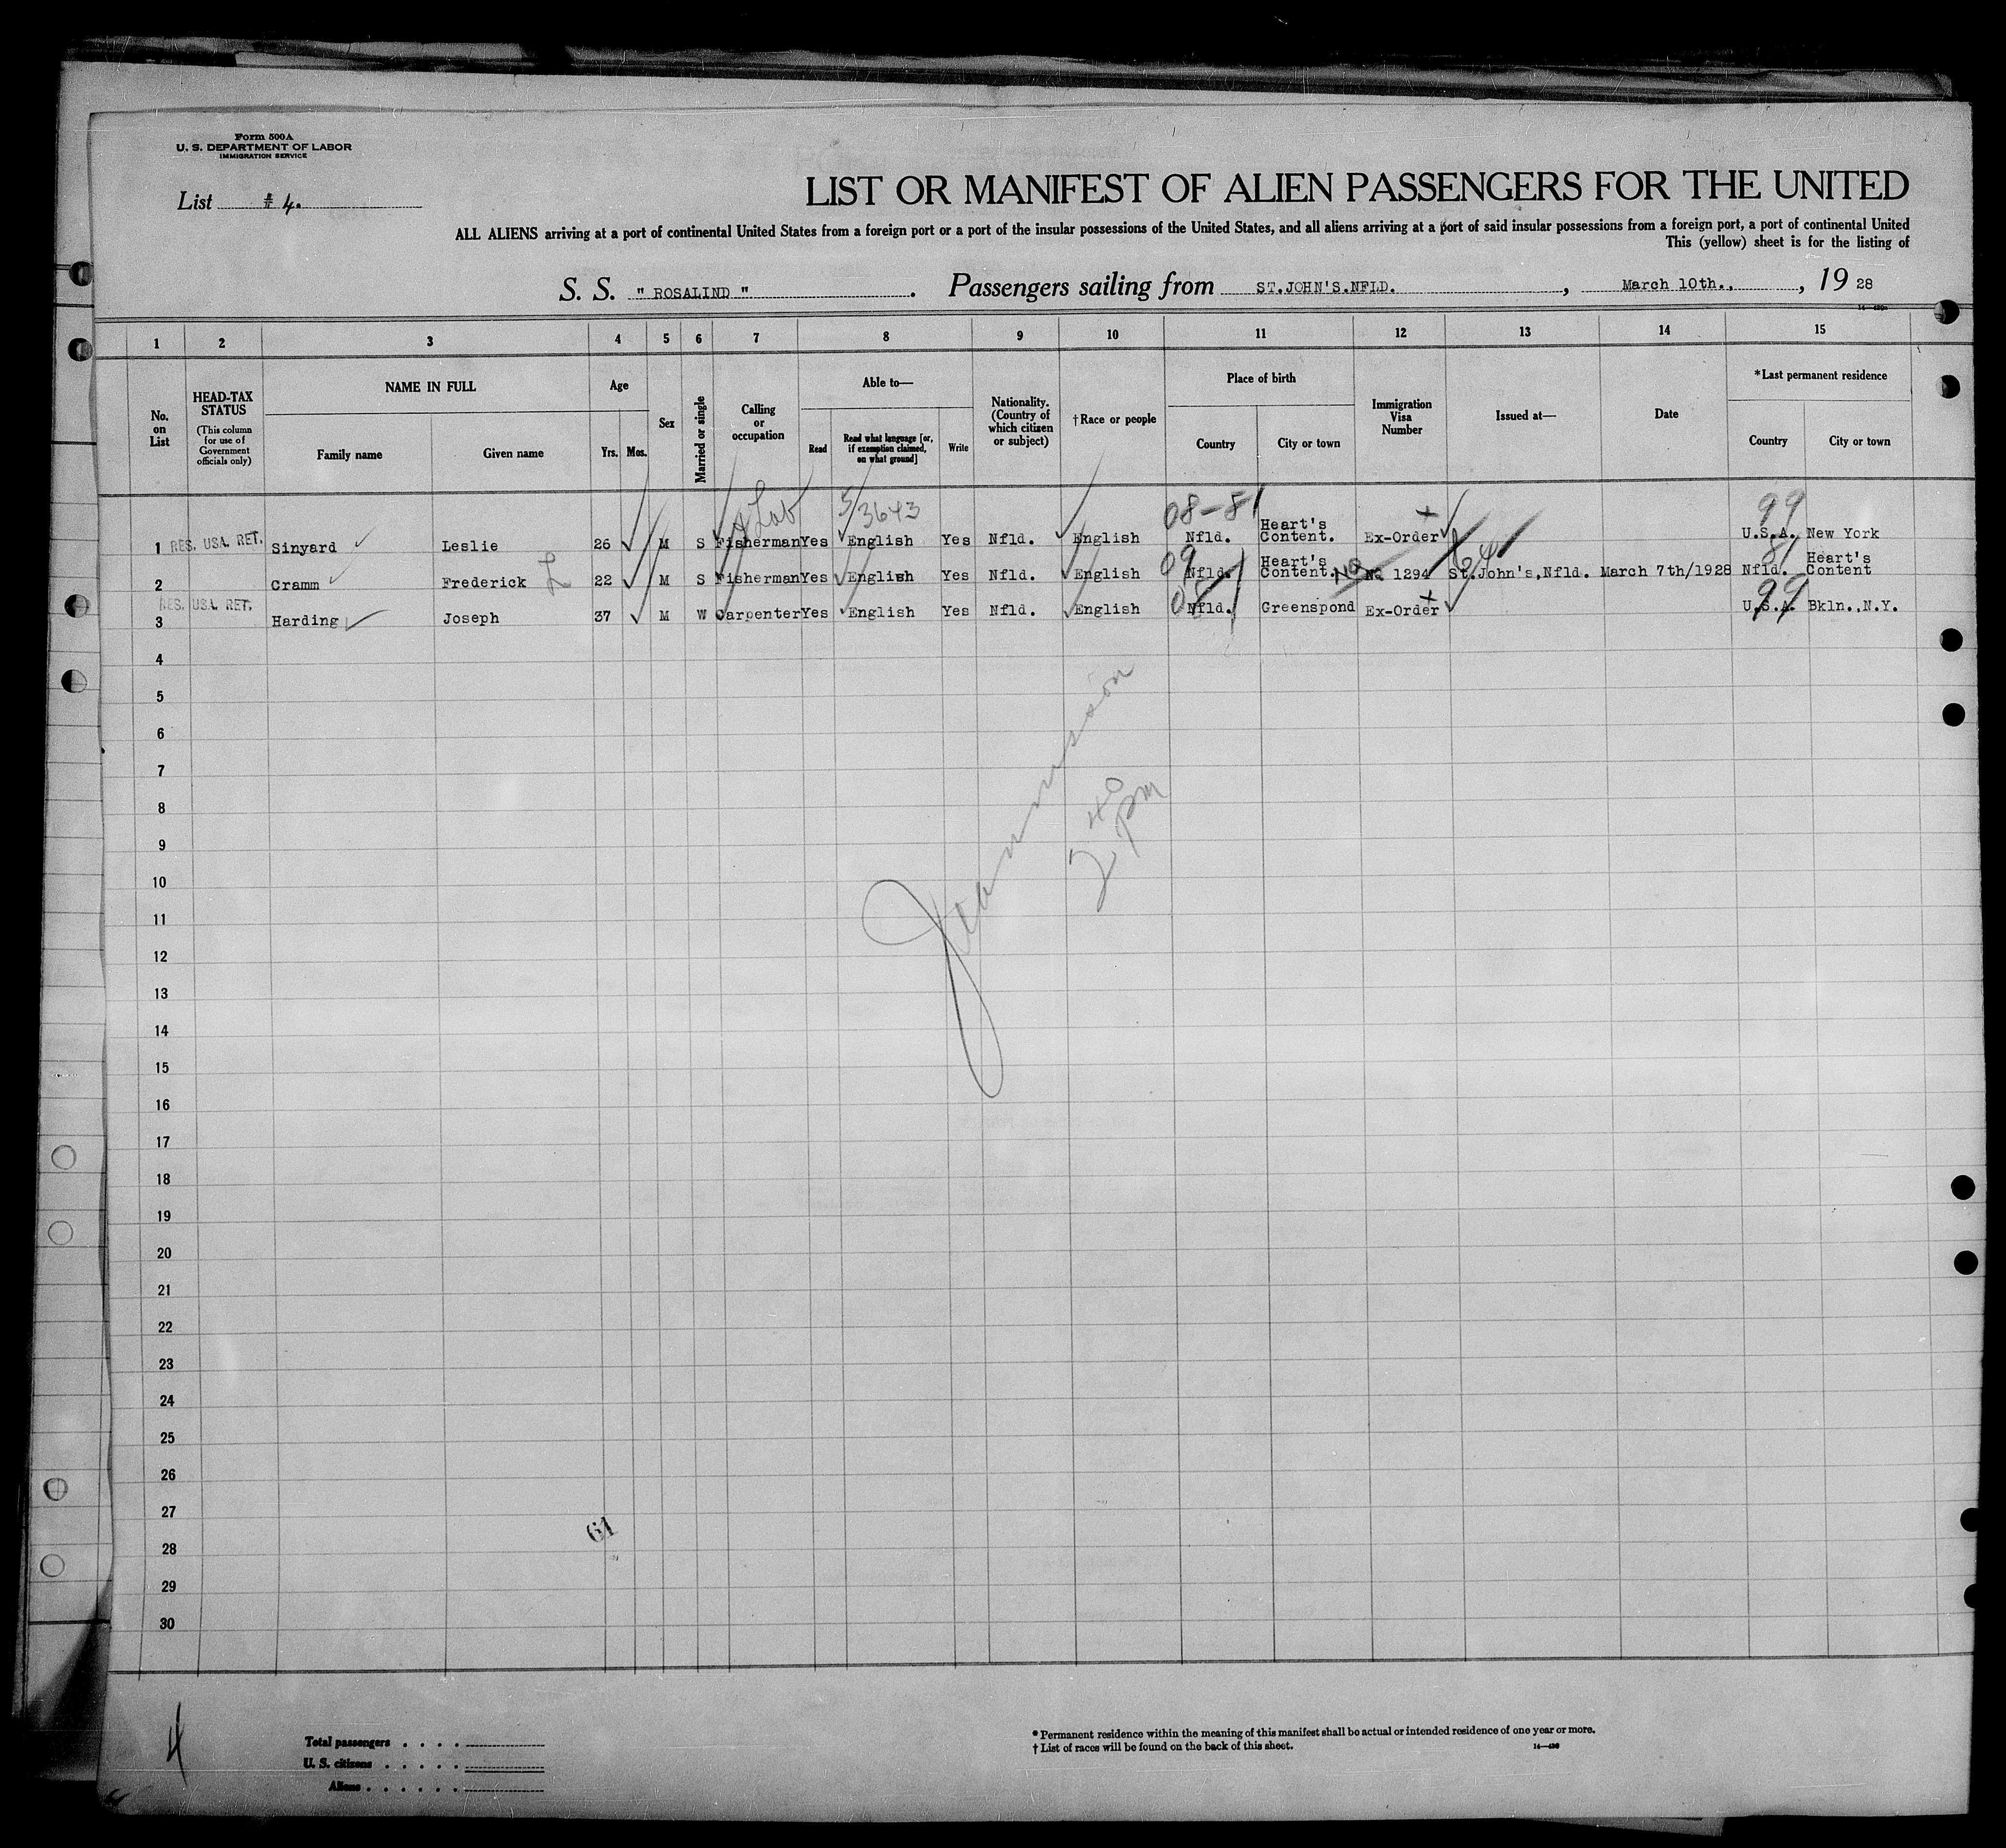 Form 500A
U. S. DEPARTMENT OF LABOR
IMMIGRATION SERVICE
List # 4.
LIST OR MANIFEST OF ALIEN PASSENGERS FOR THE UNITED
ALL ALIENS arriving at a port of continental United States from a foreign port or a port of the insular possessions of the United States, and all aliens arriving at a port of said insular possessions from a foreign port, a port of continental United
This (yellow) sheet is for the listing of
S. S. " ROSALIND " . Passengers sailing from ST.JOHN'S.NFLD. , March 10th., , 19 28
1 2 3 4 5 6 7 8 9 10 11 12 13 14 15
No. on List
HEAD-TAX STATUS (This column for use of Government officials only)
NAME IN FULL
Family name Given name
Age
Yrs. Mos.
Sex
Married or single
Calling or occupation
Able to—
Read
Read what language [or, if exemption claimed, on what ground]
Write
Nationality. (Country of which citizen or subject)
†Race or people
Place of birth
Country City or town
Immigration Visa Number
Issued at—
Date
*Last permanent residence
Country City or town
Lab 5/3643 08-81 + 99
1 RES. USA. RET. Sinyard Leslie 26 M S Fisherman Yes English Yes Nfld. English Nfld. Heart's Content. Ex-Order U.S.A. New York
2 Cramm Frederick L 22 M S Fisherman Yes English Yes Nfld. English 09 Nfld. Heart's Content. NQ No 1294 64 St.John's,Nfld. March 7th/1928 81 Nfld. Heart's Content
3 RES. USA. RET. Harding Joseph 37 M W Carpenter Yes English Yes Nfld. English Nfld. Greenspond Ex-Order + 99 U.S.A. Bkln.,N.Y.
4
5
6
7
8
9
10
11
12
13
14
15
16
17
18
19
20
21
22
23
24
25
26
27
28
29
30
2 40 pm
61
4
Total passengers . . . .
U. S. citizens . . . . .
Aliens . . . . . .
* Permanent residence within the meaning of this manifest shall be actual or intended residence of one year or more.
† List of races will be found on the back of this sheet.